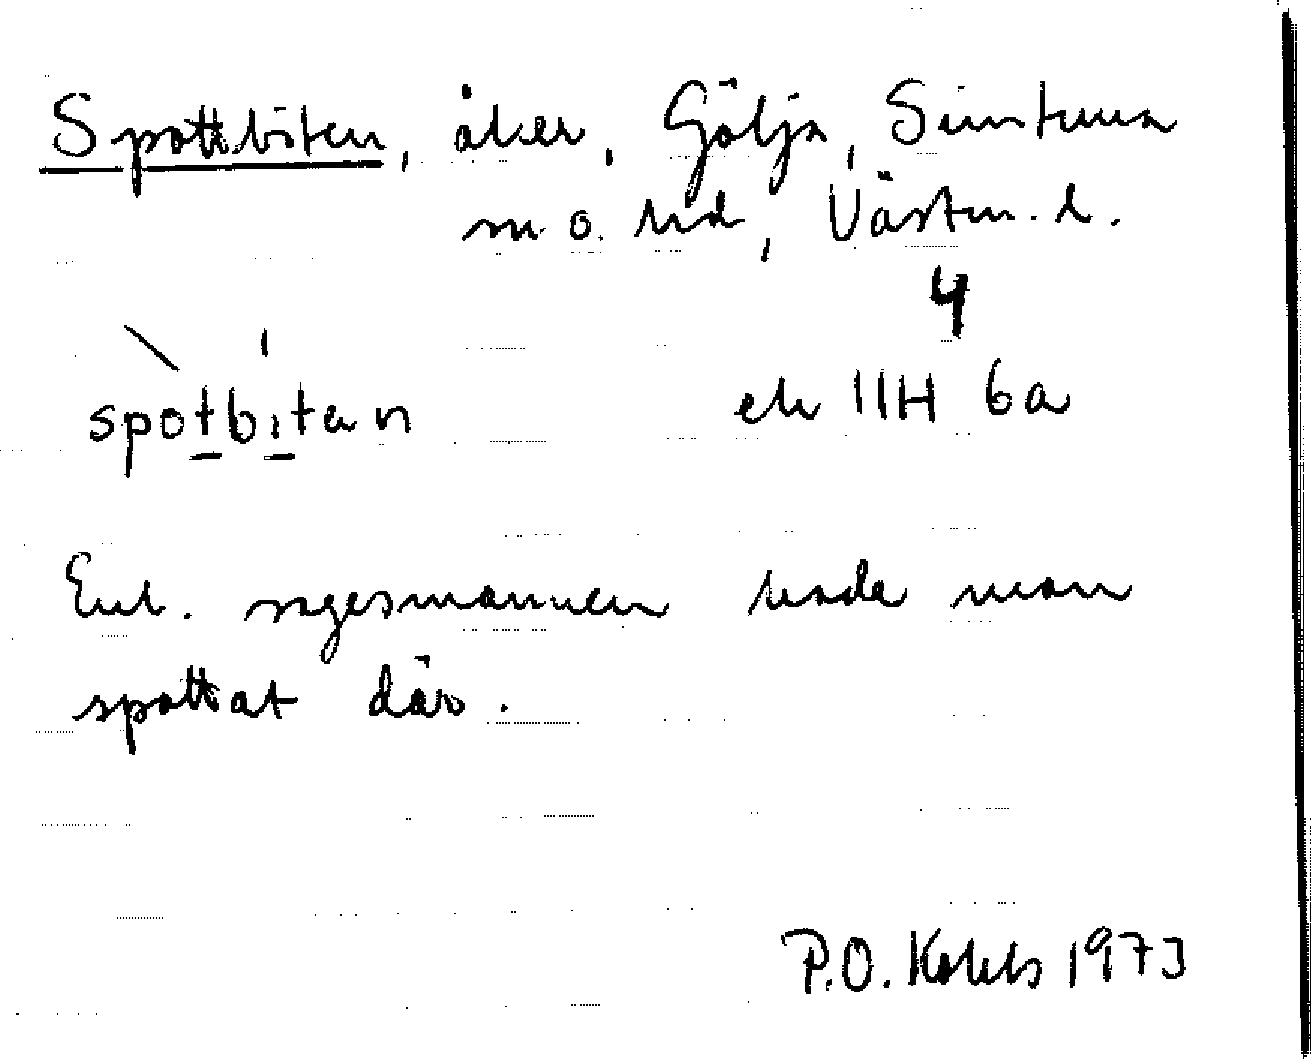 Spottbiten, åker, Gölja, Simtuna
sn o. hd, Västm. l.
4
spotbitan ek 11H 6a
Enl. sagesmannen hade man
spottat där.
P.O. 1973